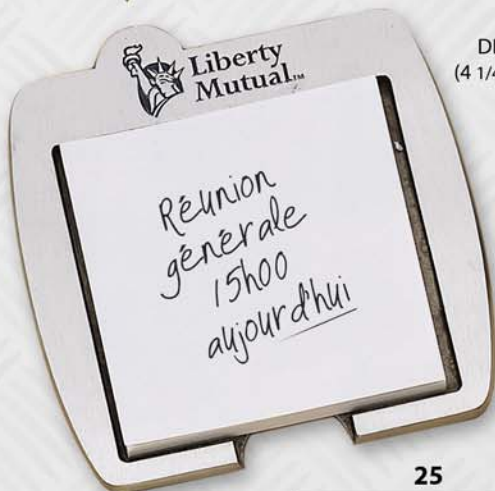 Liberty
Mutual™
DI
(4 1/4
Réunion
générale
15h00
aujourd'hui
25